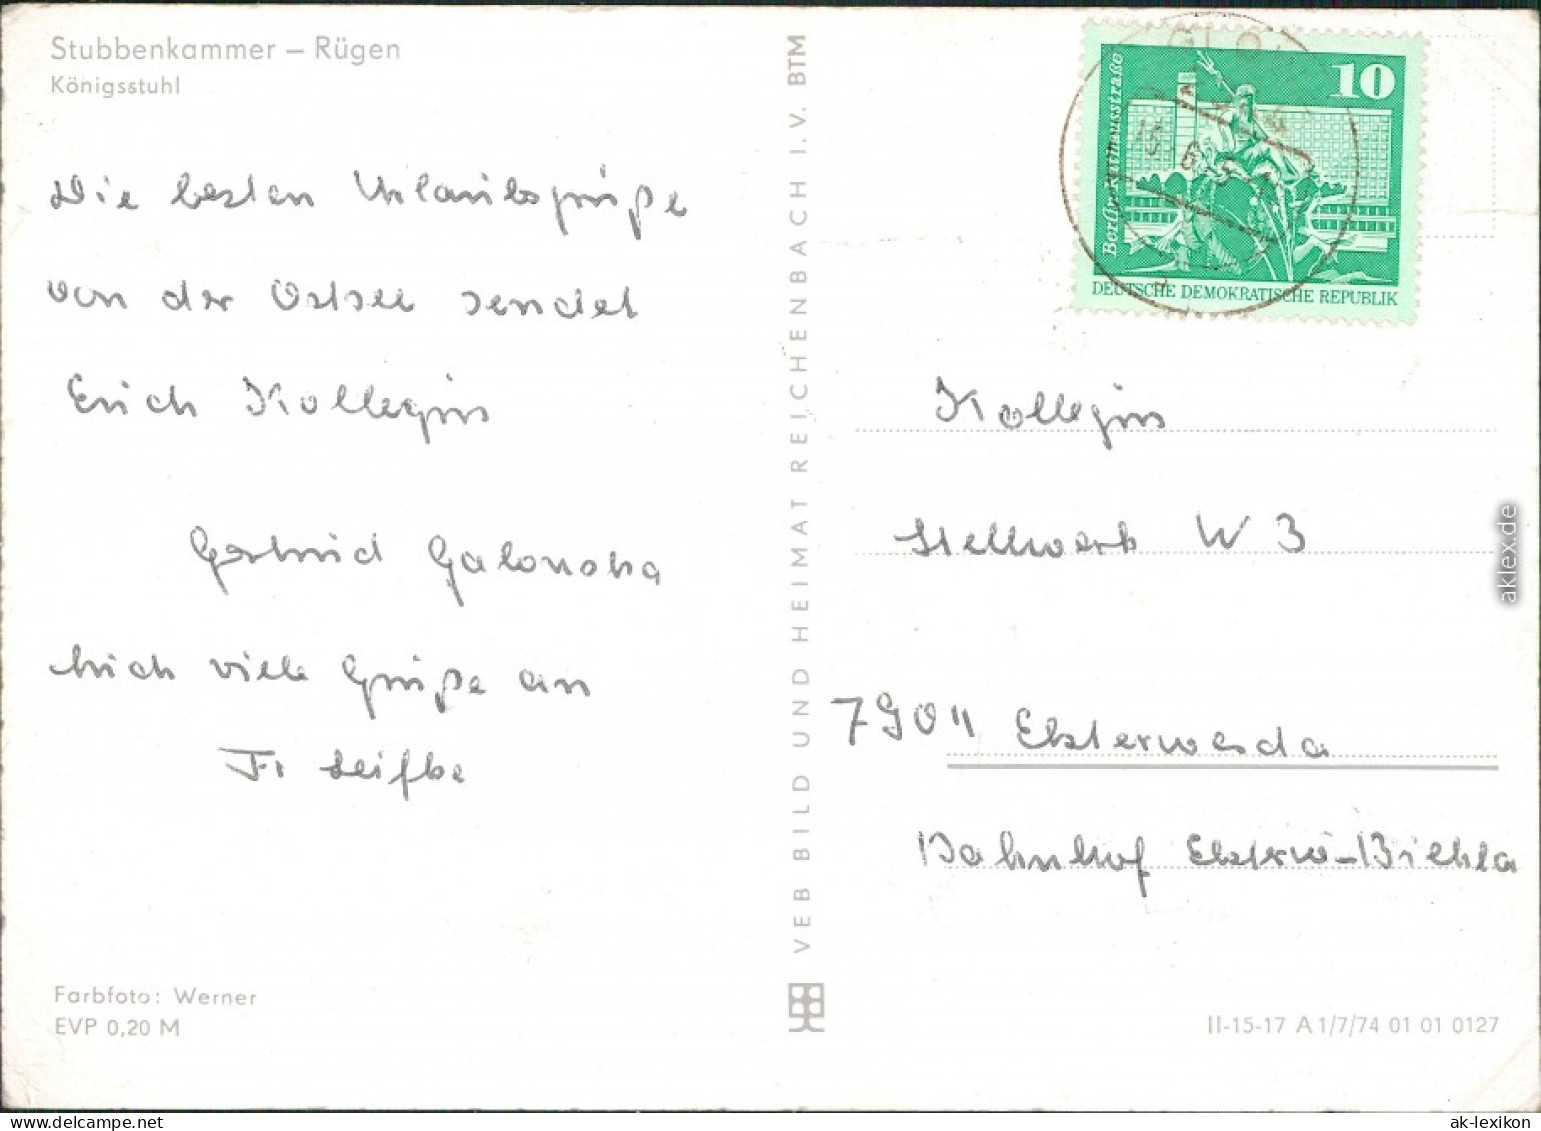 Stubbenkammer – Rügen
Königsstuhl
Die besten Urlaubsgrüße
von der Ostsee sendet
Eurch Kolleginn
Gertrud Galonska
Auch viele Grüße an
Fr Seifke
Farbfoto: Werner
EVP 0,20 M
VEB BILD UND HEIMAT REICHENBACH I. V. BTM
Berlin, Rathausstraße
10
DEUTSCHE DEMOKRATISCHE REPUBLIK
Kollegin
Stellwerk W 3
7904 Elsterwerda
Bahnhof Elsterw-Biehla
II-15-17 A 1/7/74 01 01 0127
aklex.de
ak-lexikon